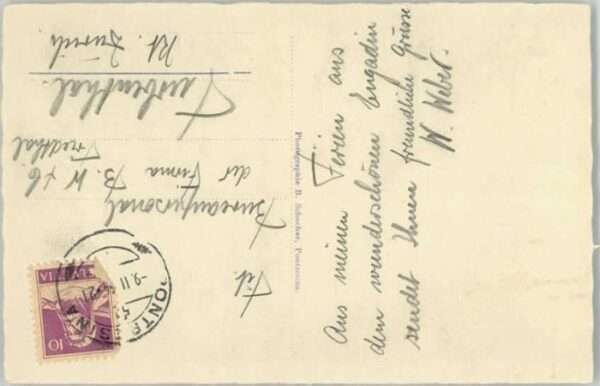 Aus meinen Ferien aus
dem wunderschönen Engadin
sendet Ihnen freundliche Grüsse
W. Weber.
Photographie B. Schocher, Pontresina.
Tit.
Bureaupersonal
der Firma B. W. & Co.
Friedthal
Turbenthal.
Kt. Zürich
PONTRESINA
-9.II.
10